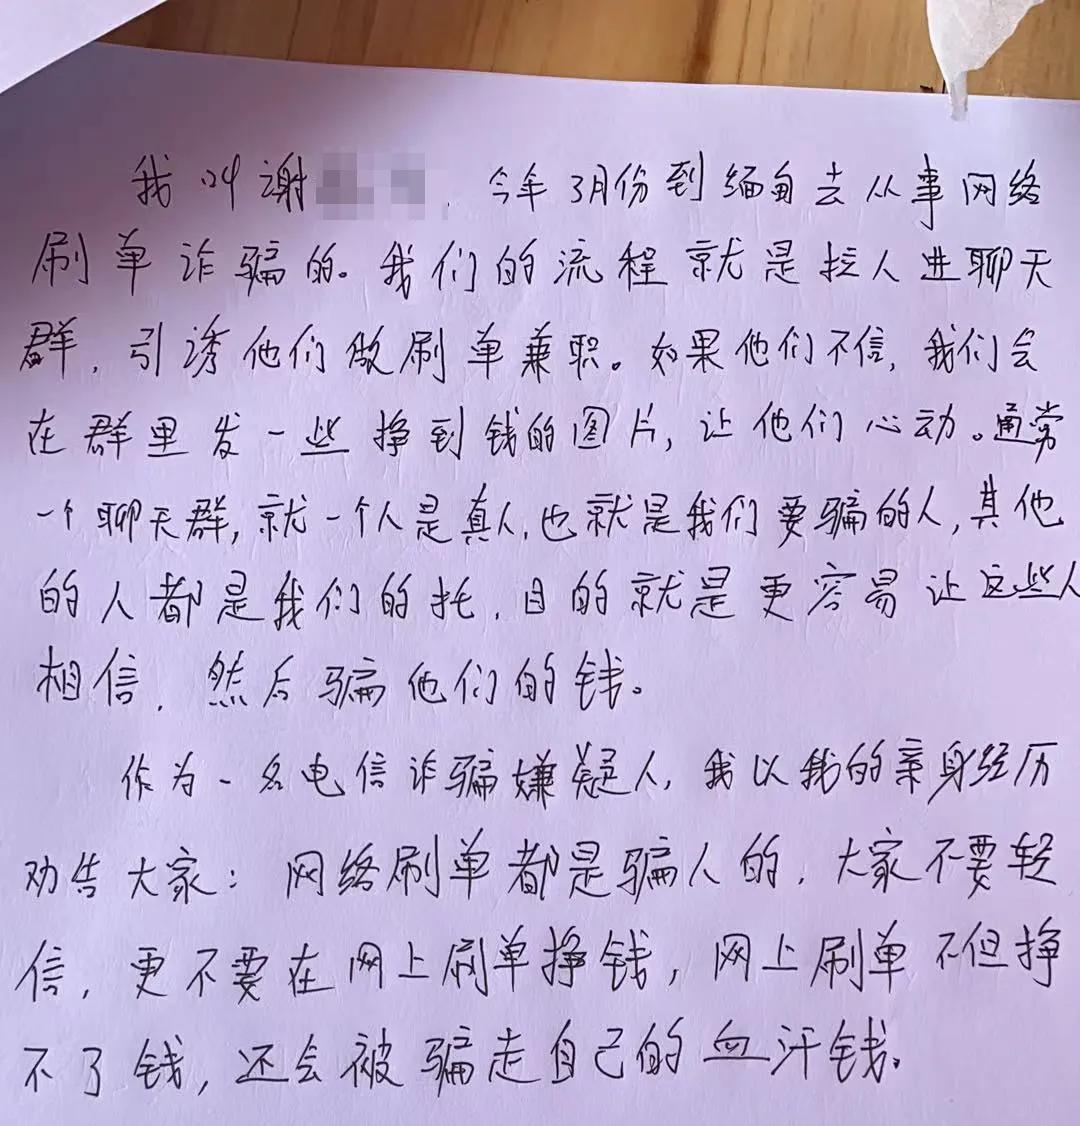 我叫谢，今年3月份到缅甸去从事网络
刷单诈骗的。我们的流程就是拉人进聊天
群，引诱他们做刷单兼职。如果他们不信，我们会
在群里发一些挣到钱的图片，让他们心动。通常
一个聊天群，就一个人是真人，也就是我们要骗的人，其他
的人都是我们的托，目的就是更容易让这些人
相信，然后骗他们的钱。
作为一名电信诈骗嫌疑人，我以我的亲身经历
劝告大家：网络刷单都是骗人的，大家不要轻
信，更不要在网上刷单挣钱，网上刷单不但挣
不了钱，还会被骗走自己的血汗钱。